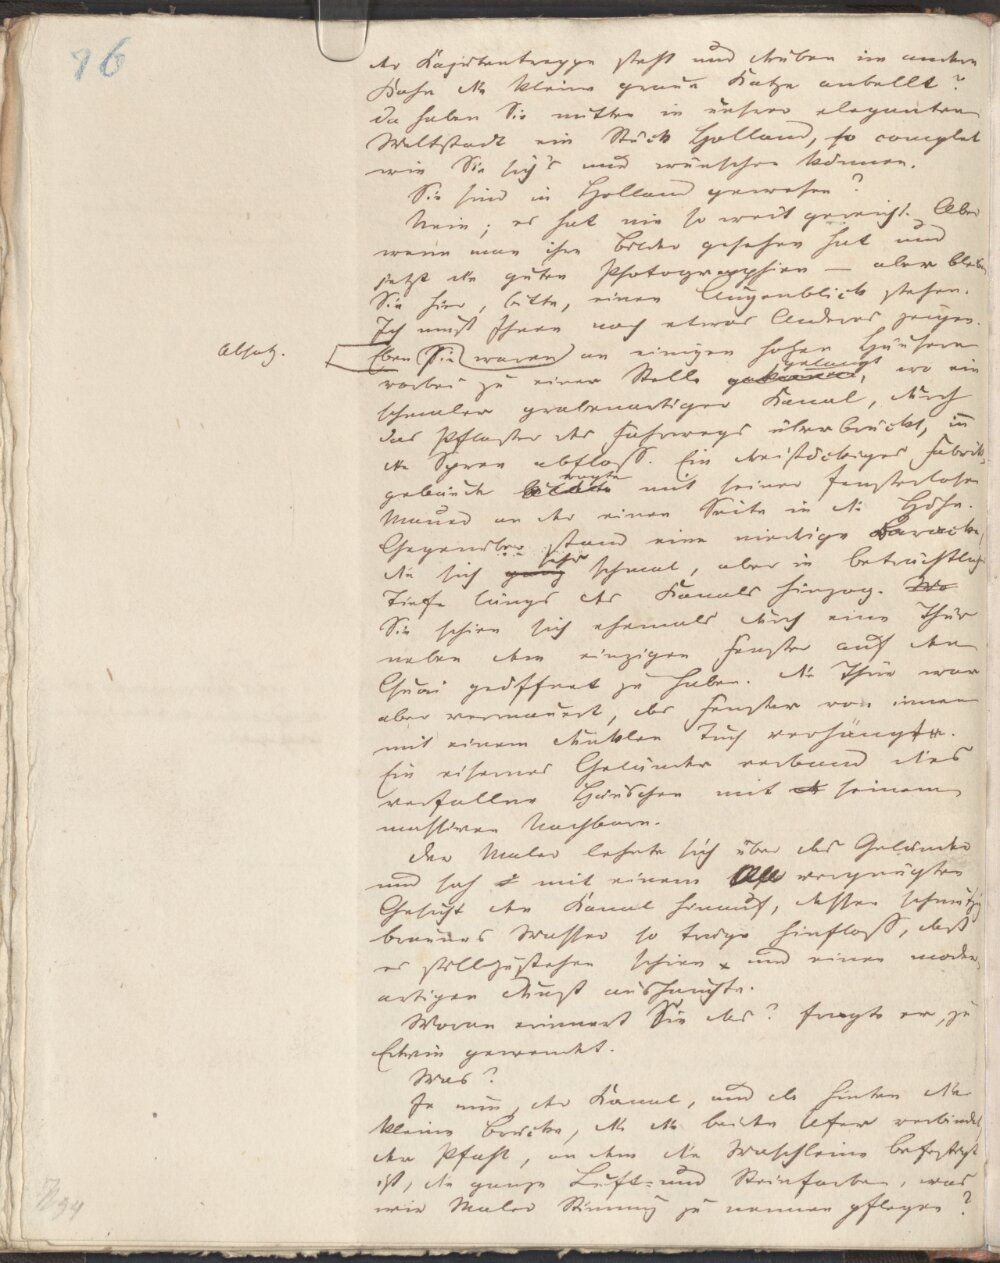 76
der Kajütentreppe steht und drüben im andern
Kahn die kleine graue Katze anbellt?
Da haben Sie mitten in unsrer eleganten
Weltstadt ein Stück Holland, so complet
wie Sie sich's nur wünschen können.
Sie sind in Holland gewesen?
Nein; es hat nie so weit gereicht. Aber
wenn man ihre Bilder gesehen hat und
jetzt die guten Photographien — aber bleiben
Sie hier, bitte, einen Augenblick stehen.
Ich muß Ihnen noch etwas Anderes zeigen.
Absatz.
Eben Sie waren an einigen hohen Häusern
vorbei zu einer Stelle gelangt, wo ein
schmaler grabenartiger Kanal, durch
das Pflaster des Fahrwegs überbrückt, in
die Spree abfloß. Ein dreistöckiges Fabrik-
gebäude ragte mit seiner fensterlosen
Mauer an der einen Seite in die Höhe.
Gegenüber stand eine niedrige Baracke,
die sich ganz sehr schmal, aber in beträchtlicher
Tiefe längs des Kanals hinzog. Wo
Sie schien sich ehemals durch eine Thür
neben dem einzigen Fenster auf den
Quai geöffnet zu haben. Die Thür war
aber vermauert, das Fenster von innen
mit einem dunklen Tuch verhängt.
Ein eisernes Geländer verband dies
verfallne Häuschen mit seinem
massiven Nachbarn.
Der Maler lehnte sich über das Geländer
und sah mit einem vergnügten
Gesicht den Kanal hinauf, dessen schmutzig
braunes Wasser so träge hinfloß, daß
es stillzustehen schien und einen moder-
artigen Dunst aushauchte.
Woran erinnert Sie das? fragte er, zu
Edwin gewendet.
Was?
Je nun, der Kanal, und da hinten die
kleine Brücke, die die beiden Ufer verbindet,
der Pfahl, an dem die Waschleine befestigt
ist, die ganze Luft- und Steinfarben, was
wir Maler Stimmung zu nennen pflegen?